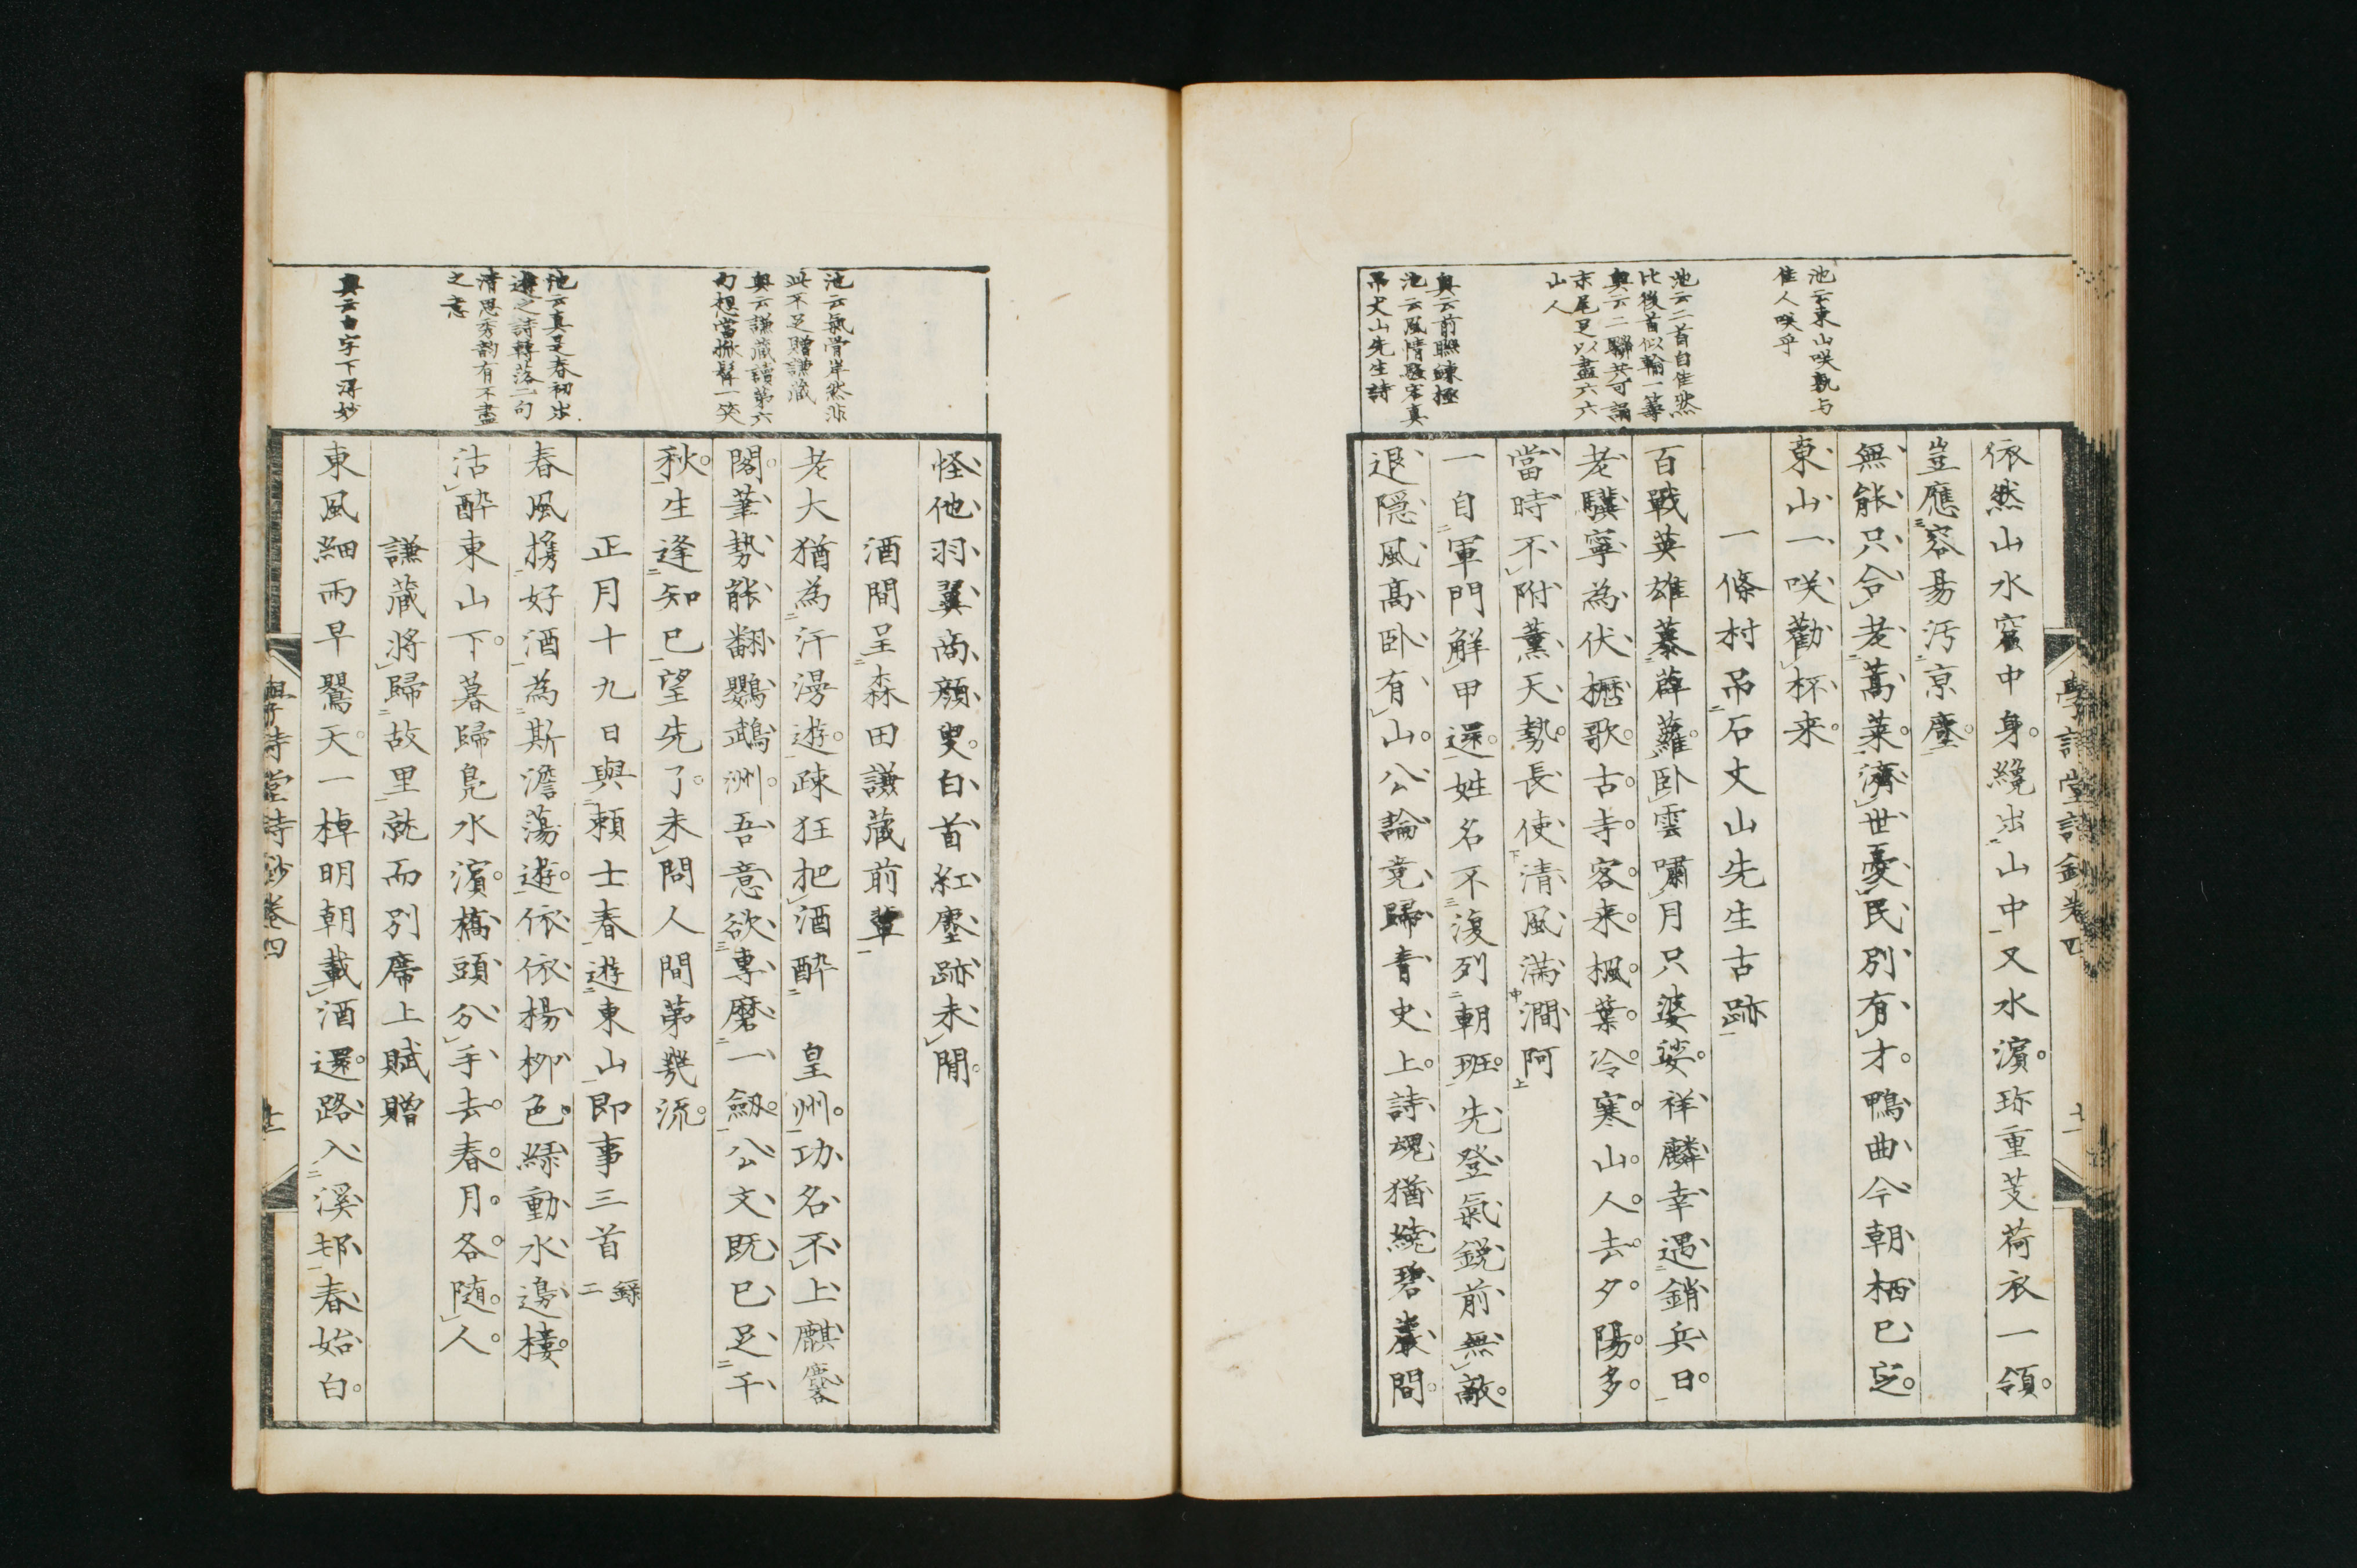 池云東山咲孰与
隹人咲乎
池云二首自佳然
比後首似輸一籌
奥云二聯共可誦
末尾足以盡六六
山人
奥云前聯練極
池云風情騷客真
吊丈山先生詩
依然山水窟中身纔出山中又水濱珍重芰荷衣一領
豈應容易汚京塵
無能只合老蒿萊濟世憂民別有才鴨曲今朝栖已定
東山一咲勸杯来
一條村吊石丈山先生古跡
百戰英雄慕薜蘿卧雲嘯月只婆娑祥麟幸遇銷兵日
老驥寧為伏櫪歌古寺客来楓葉冷寒山人去夕陽多
當時不附薰天勢長使清風滿澗阿
一自軍門解甲還姓名不復列朝班先登氣鋭前無敵
退隱風高卧有山公論竟歸青史上詩魂猶繞碧巖間
學詩堂詩鈔卷四
十一
池云氣骨岸然非
此不足贈謙蔵
奥云謙蔵讀第六
句想當掀髯一笑
池云真是春初出
遊之詩轉落二句
清思秀韵有不盡
之意
奥云白字下得妙
怪他羽翼商顔叟白首紅塵跡未閒
酒間呈森田謙蔵前輩
老大猶為汗漫遊疎狂把酒酔皇州功名不上麒麟
閣筆勢能翻鸚鵡洲吾意欲專磨一劔公文既已足千
秋生逢知已望先了未問人間第幾流
正月十九日與頼士春遊東山即事三首錄二
春風携好酒為斯澹蕩遊依依楊柳色緑動水邊樓
沽酔東山下暮歸鳬水濱橋頭分手去春月各随人
謙蔵將歸故里就而別席上賦贈
東風細雨早鶯天一棹明朝載酒還路入溪邨春始白
學詩堂詩鈔卷四